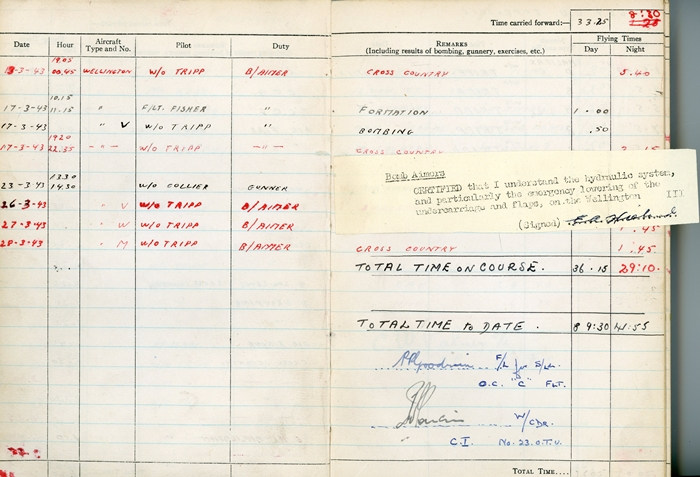 Time carried forward:— 33.25 8:30
Date Hour Aircraft Type and No. Pilot Duty
REMARKS (Including results of bombing, gunnery, exercises, etc.)
Flying Times
Day Night
19.05
-3-43 00.45 WELLINGTON W/O TRIPP B/AIMER CROSS COUNTRY 5.40
10.15
17-3-43 11.15 " F/LT. FISHER " FORMATION 1.00
17-3-43 " V W/O TRIPP " BOMBING .50
1920
17-3-43 22.35 -"- W/O TRIPP -"- CROSS COUNTRY
Bomb Aimers
CERTIFIED that I understand the hydraulic system,
and particularly the emergency lowering of the
undercarriage and flaps, on the Wellington III
(Signed)
13.30
23-3-43 14.30 W/O COLLIER GUNNER
26-3-43 " V W/O TRIPP B/AIMER
27-3-43 " W W/O TRIPP B/AIMER 1.45
28-3-43 " M W/O TRIPP B/AIMER CROSS COUNTRY 1.45
TOTAL TIME ON COURSE. 36.15 29:10.
TOTAL TIME to DATE. 89:30 41:55
F/L for S/Ldr.
O.C. "C" FLT.
W/CDR.
C.I. No. 23. O.T.U.
TOTAL TIME....